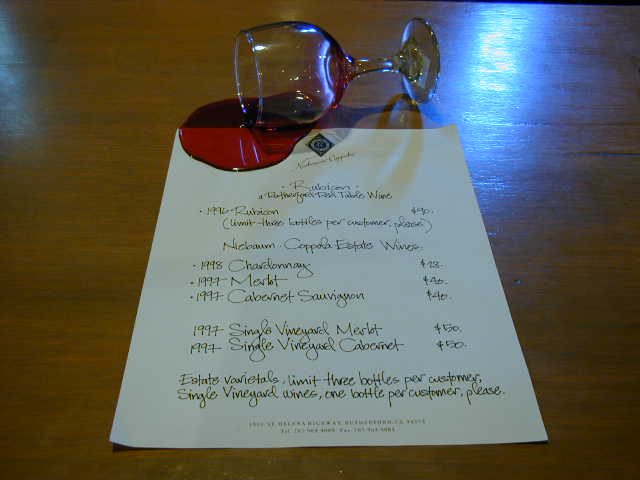 Niebaum-Coppola
· Rubicon ·
a Rutherford Red Table Wine
· 1996 Rubicon $90.
(limit three bottles per customer, please.)
Niebaum · Coppola Estate Wines:
· 1998 Chardonnay
· 1997 Merlot $40.
· 1997 Cabernet Sauvignon $40.
1997 Single Vineyard Merlot $50.
1997 Single Vineyard Cabernet $50.
Estate varietals, limit three bottles per customer,
Single Vineyard wines, one bottle per customer, please.
1991 ST. HELENA HIGHWAY, RUTHERFORD, CA 94573
Tel. 707 968-4099 Fax. 707 963-9084